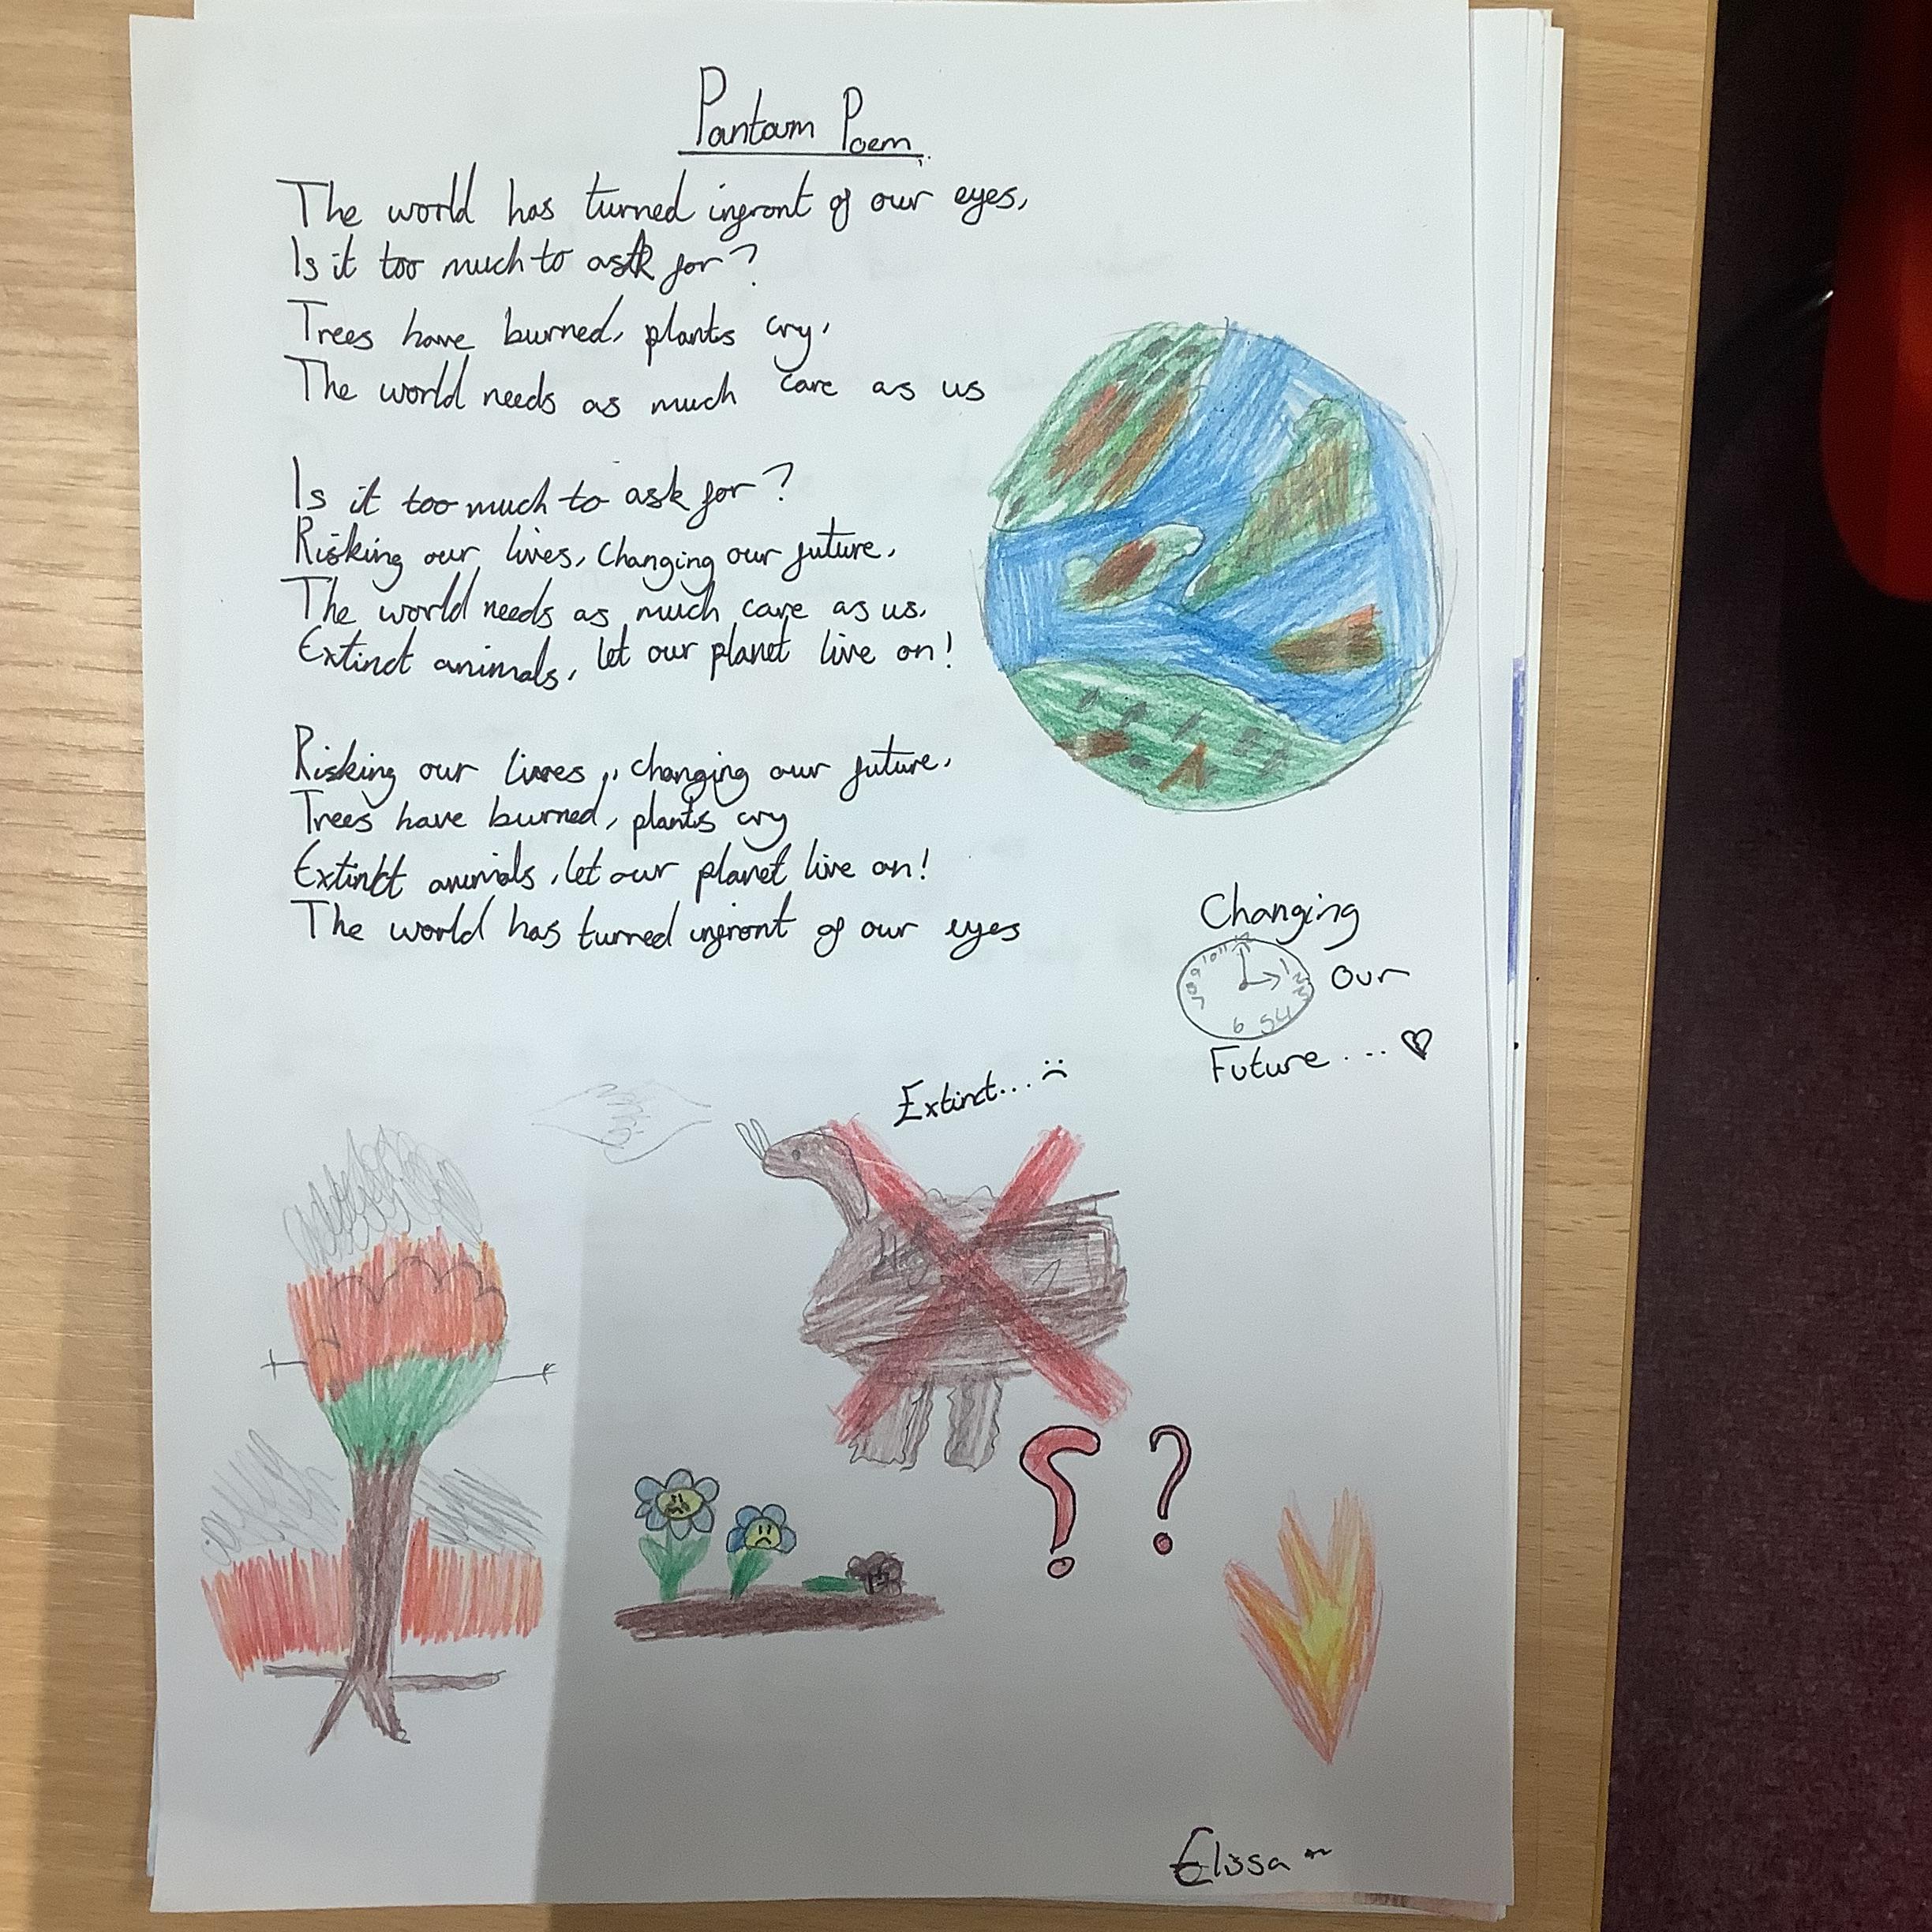 Pantoum Poem
The world has turned infront of our eyes,
Is it too much to ask for?
Trees have burned, plants cry,
The world needs as much care as us
Is it too much to ask for?
Risking our lives, changing our future,
The world needs as much care as us.
Extinct animals, let our planet live on!
Risking our lives, changing our future,
Trees have burned, plants cry
Extinct animals, let our planet live on!
The world has turned infront of our eyes
Changing
12 1 2 3 4 5 6 7 8 9 10 11
Our
Future.... 
Extinct...
? ?
Elissa